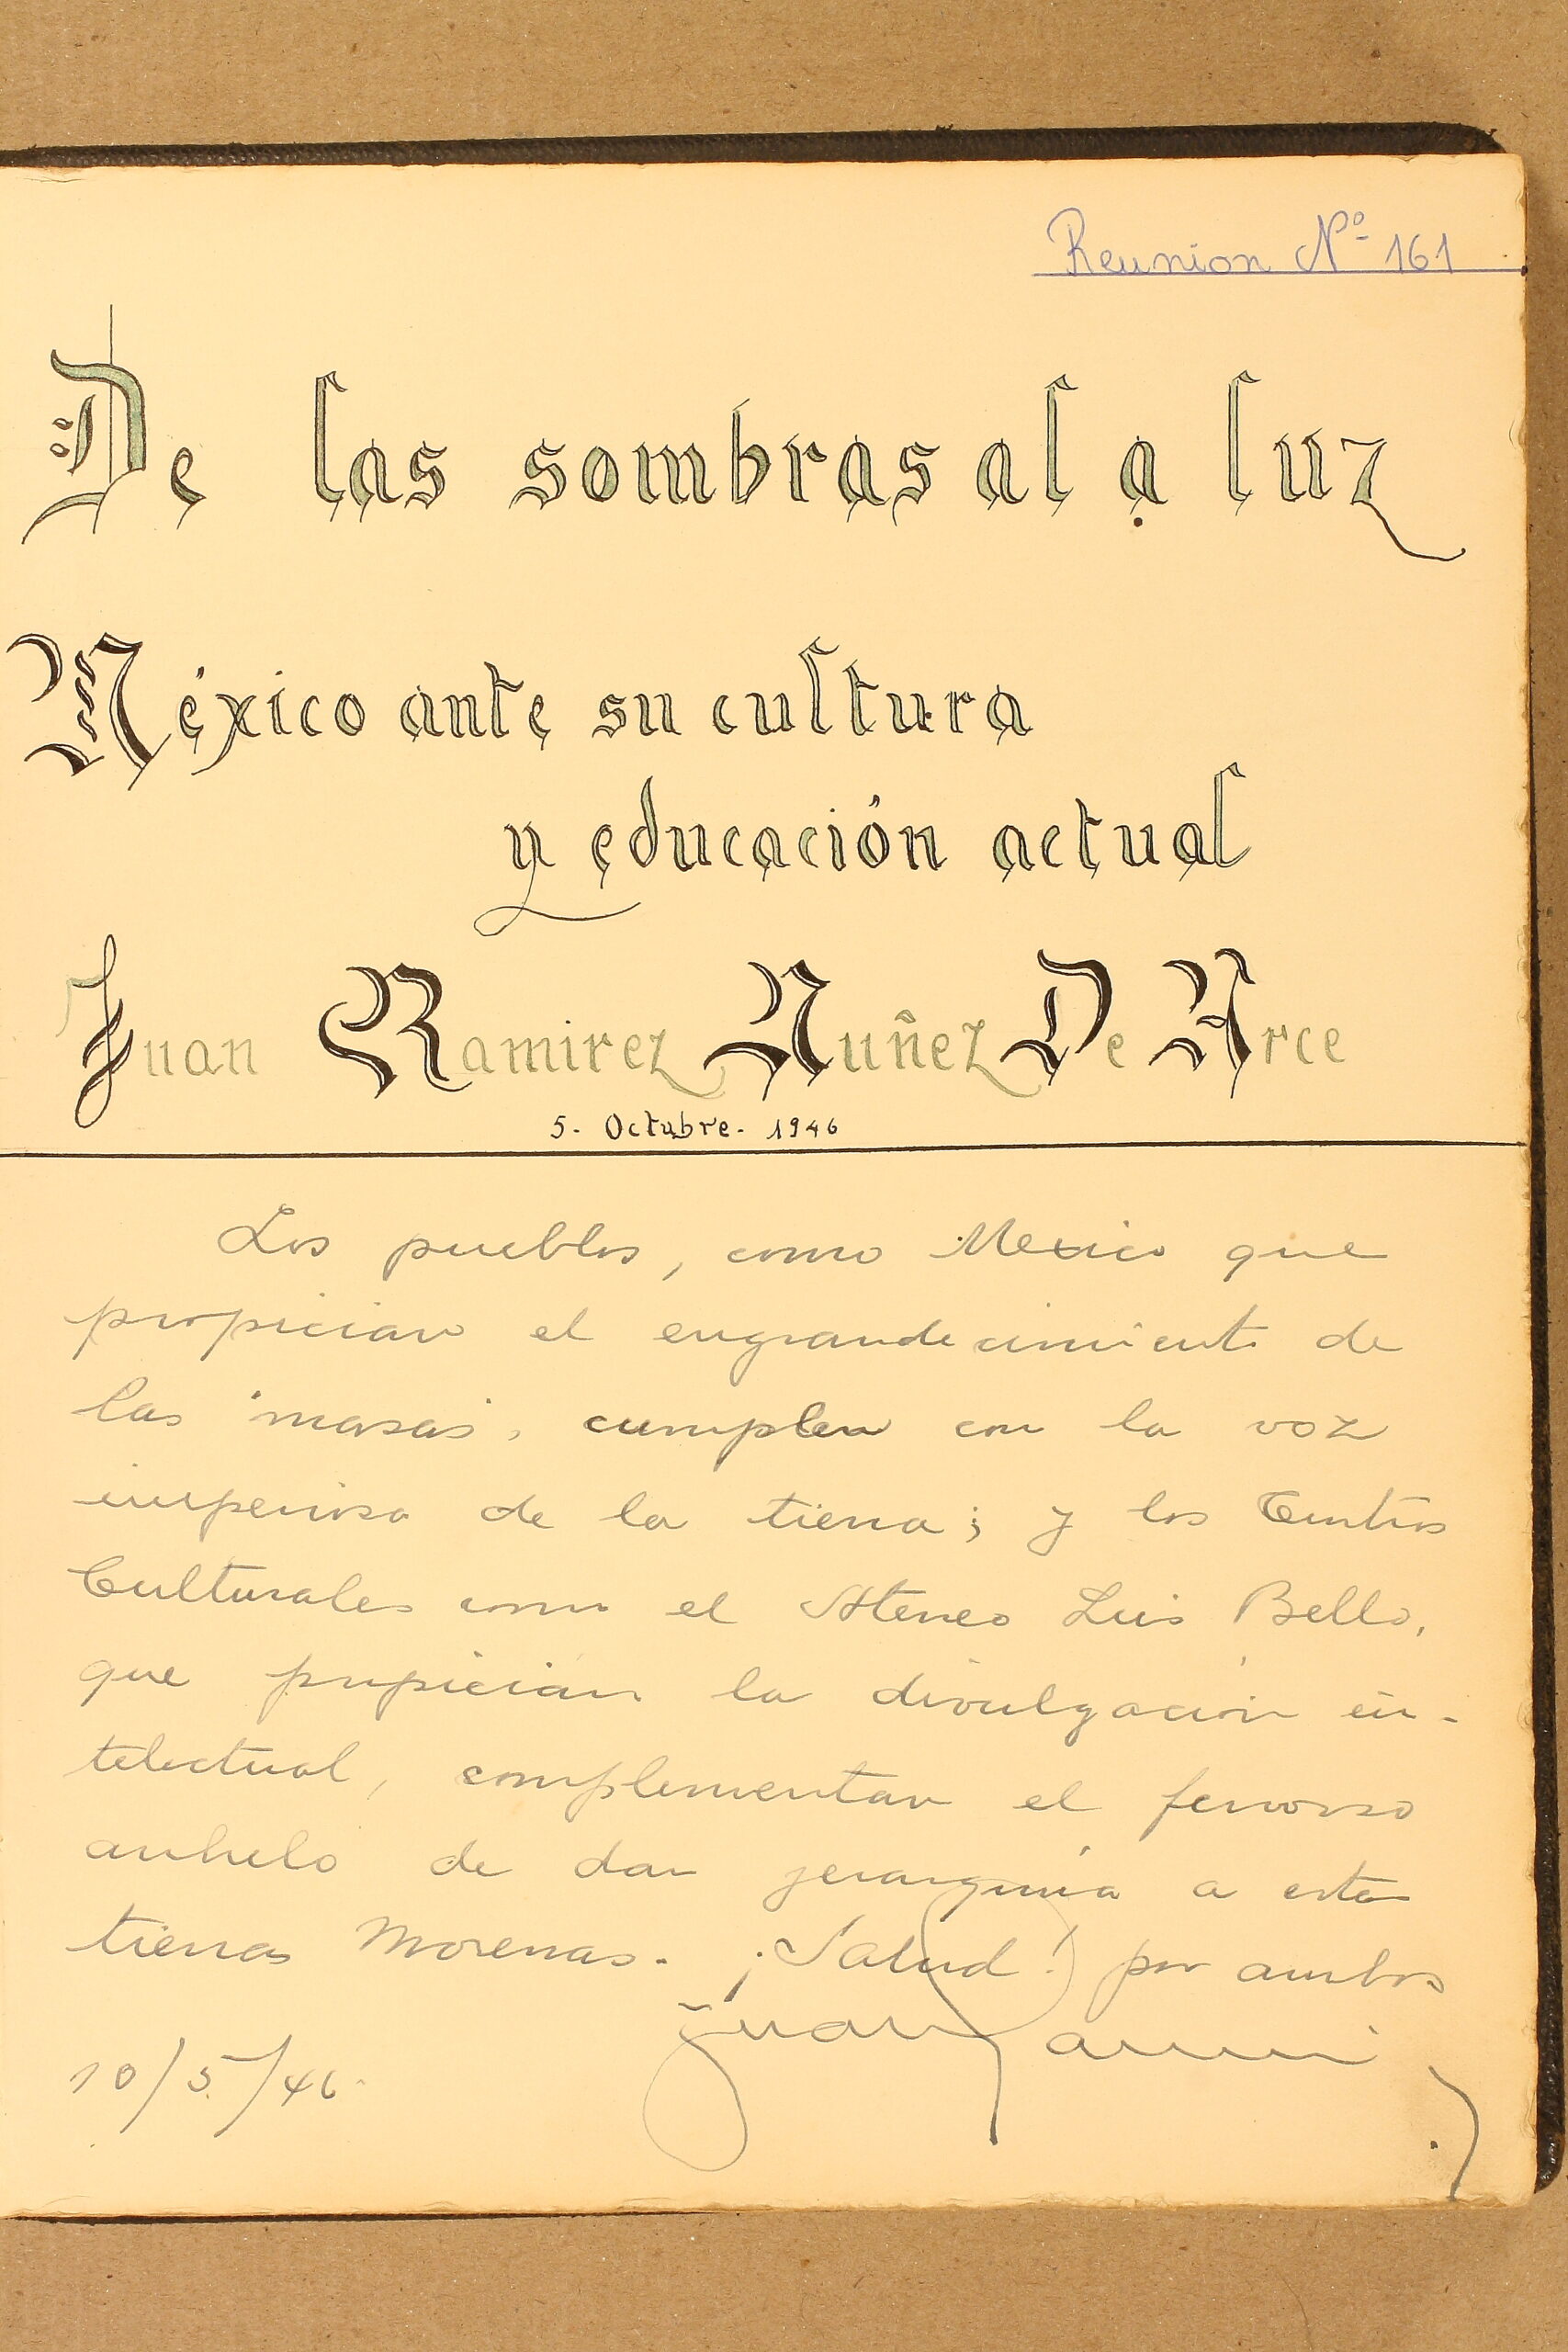 Reunion Nº 161
De las sombras al a luz
México ante su cultura
y educación actual
Juan Ramirez Nuñez De Arce
5. Octubre. 1946
Los pueblos, como Mexico que
propician el engrandecimiento de
las "masas", cumplen con la voz
imperiosa de la tierra; y los Centros
Culturales como el Ateneo Luis Bello,
que propician la divulgación in-
telectual, complementan el fervoroso
anhelo de dar jerarquía a estas
tierras Morenas. ¡Salud! por ambos
Juan
10/5/46